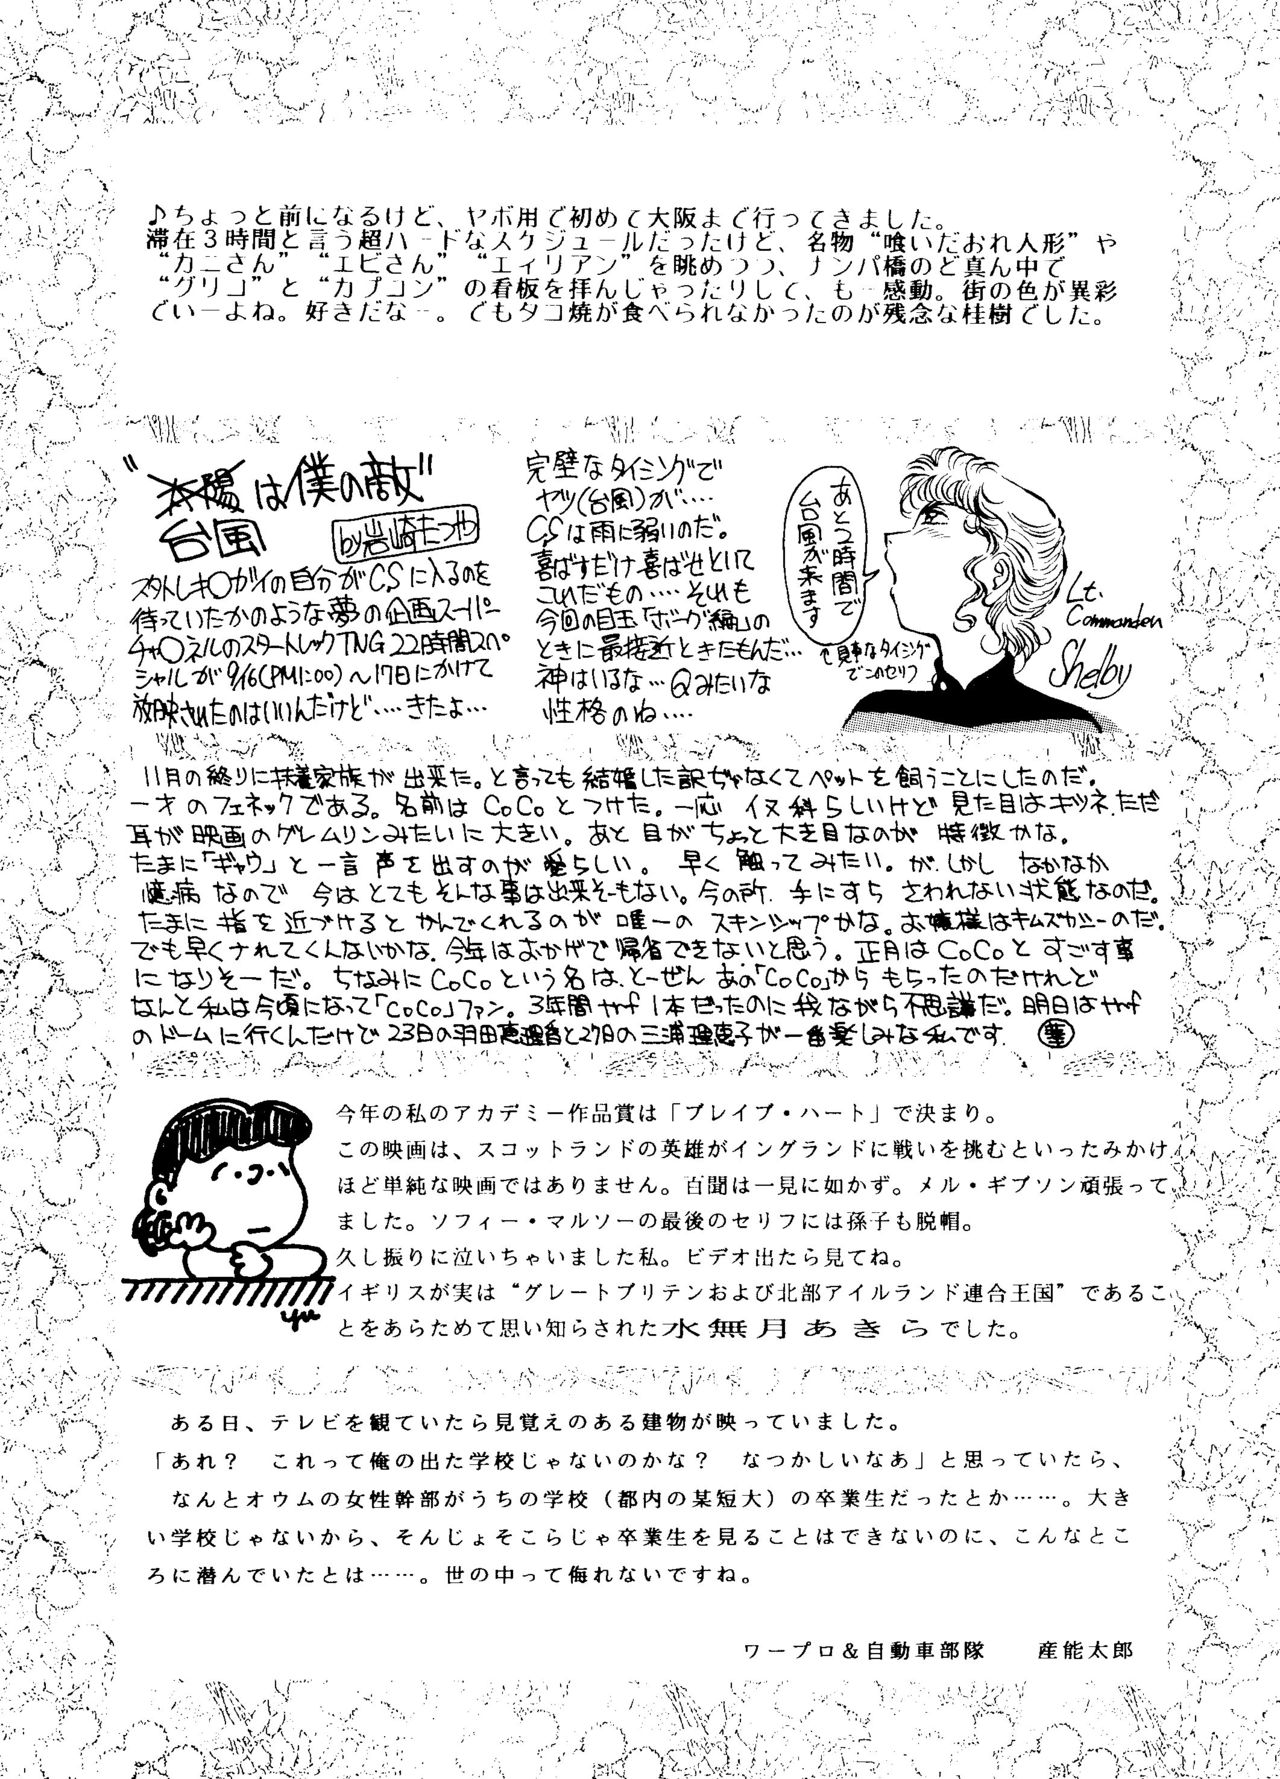 ♪ちょっと前になるけど、ヤボ用で初めて大阪まで行ってきました。
滞在3時間と言う超ハードなスケジュールだったけど、名物“喰いだおれ人形”や
“カニさん”“エビさん”“エィリアン”を眺めつつ、ナンパ橋のど真ん中で
“グリコ”と“カプコン”の看板を拝んじゃったりして、も一感動。街の色が異彩
でいーよね。好きだなー。でもタコ焼が食べられなかったのが残念な桂樹でした。
“太陽は僕の敵”
台風
by岩崎たつや
スタトレキ○ガイの自分がC.S.に入るのを
待っていたかのような夢の企画スーパー
チャ○ネルのスタートレックTNG22時間スペ
シャルが9/16(PM1:00)〜17日にかけて
放映されたのはいいんだけど‥‥きたよ…
完璧なタイミングで
ヤツ(台風)が‥‥
C.S.は雨に弱いのだ。
喜ばすだけ喜ばせといて
これだもの‥‥それも
今回の目玉「ボーグ編」の
ときに最接近ときたもんだ…
神はいるな…Qみたいな
性格のね‥‥
あと2時間で
台風が来ます
↑見事なタイミング
でこのセリフ
Lt.
Commander
Shelby
11月の終りに扶養家族が出来た。と言っても結婚した訳ぢゃなくてペットを飼うことにしたのだ。
一才のフェネックである。名前はCoCoとつけた。一応イヌ科らしいけど見た目はキツネ、ただ
耳が映画のグレムリンみたいに大きい。あと目がちょっと大き目なのが特徴かな。
たまに「ギャウ」と一言声を出すのが愛らしい。早く触ってみたい。が、しかしなかなか
憶病なので今はとてもそんな事は出来そーもない。今の所、手にすらさわれない状態なのだ。
たまに指を近づけるとかんでくれるのが唯一のスキンシップかな。お嬢様はキムズカシーのだ。
でも早くナれてくんないかな。今年はおかげで帰省できないと思う。正月はCoCoとすごす事
になりそーだ。ちなみにCoCoという名は、とーぜんあの「CoCo」からもらったのだけれど
なんと私は今頃になって「CoCo」ファン。3年間ribf1本だったのに我ながら不思議だ。明日は
のドームに行くんだけで23日の羽田恵理香と27日の三浦理恵子が一番楽しみな私です。
今年の私のアカデミー作品賞は「ブレイブ・ハート」で決まり。
この映画は、スコットランドの英雄がイングランドに戦いを挑むといったみかけ
ほど単純な映画ではありません。百聞は一見に如かず。メル・ギブソン頑張って
ました。ソフィー・マルソーの最後のセリフには孫子も脱帽。
久し振りに泣いちゃいました私。ビデオ出たら見てね。
イギリスが実は“グレートブリテンおよび北部アイルランド連合王国”であるこ
とをあらためて思い知らされた水無月あきらでした。
yu
ある日、テレビを観ていたら見覚えのある建物が映っていました。
「あれ？　これって俺の出た学校じゃないのかな？　なつかしいなあ」と思っていたら、
なんとオウムの女性幹部がうちの学校（都内の某短大）の卒業生だったとか……。大き
い学校じゃないから、そんじょそこらじゃ卒業生を見ることはできないのに、こんなとこ
ろに潜んでいたとは……。世の中って侮れないですね。
ワープロ＆自動車部隊　　産能太郎